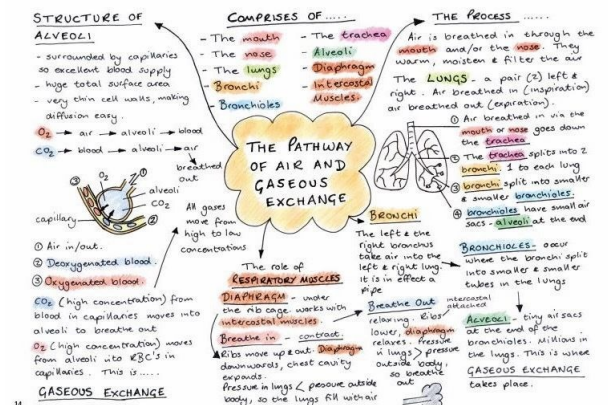 STRUCTURE OF
ALVEOLI
- surrounded by capillaries
so excellent blood supply
- huge total surface area
- very thin cell walls, making
diffusion easy.
O₂ → air → alveoli → blood
CO₂ → blood → alveoli → air
breathed
out
③ O₂ ①
alveoli
CO₂
capillary
②
① Air in/out.
② Deoxygenated blood.
③ Oxygenated blood.
All gases
move from
high to low
concentrations
CO₂ (high concentration) from
blood in capillaries moves into
alveoli to breathe out
O₂ (high concentration) moves
from alveoli into RBC's in
capillaries. This is .....
GASEOUS EXCHANGE
COMPRISES OF .....
- The mouth
- The nose
- The lungs
- Bronchi
- Bronchioles
- The trachea
- Alveoli
- Diaphragm
- Intercostal
Muscles.
THE PATHWAY
OF AIR AND
GASEOUS
EXCHANGE
The role of
RESPIRATORY MUSCLES
DIAPHRAGM - under
the rib cage. works with
intercostal muscles.
Breathe in - contract.
Ribs move up & out. Diaphragm
downwards, chest cavity
expands.
Pressure in lungs < pressure outside
body, so the lungs fill with air
BRONCHI
The left & the
right bronchus
take air into the
left & right lung.
It is in effect a
pipe
Breathe Out
intercostal
relaxing. Ribs
lower, diaphragm
relaxes. Pressure
in lungs > pressure
outside body,
so breathe
out
THE PROCESS ......
Air is breathed in through the
mouth and/or the nose. They
warm, moisten & filter the air
The LUNGS - a pair (2) left &
right. Air breathed in (inspiration)
air breathed out (expiration).
① Air breathed in via the
mouth or nose goes down
the trachea
② The trachea splits into 2
bronchi. 1 to each lung
③ bronchi split into smaller
& smaller bronchioles.
④ bronchioles have small air
sacs - alveoli at the end
BRONCHIOLES - occur
where the bronchi split
into smaller & smaller
tubes in the lungs
ALVEOLI - tiny air sacs
at the end of the
bronchioles. Millions in
the lungs. This is where
GASEOUS EXCHANGE
takes place.
14